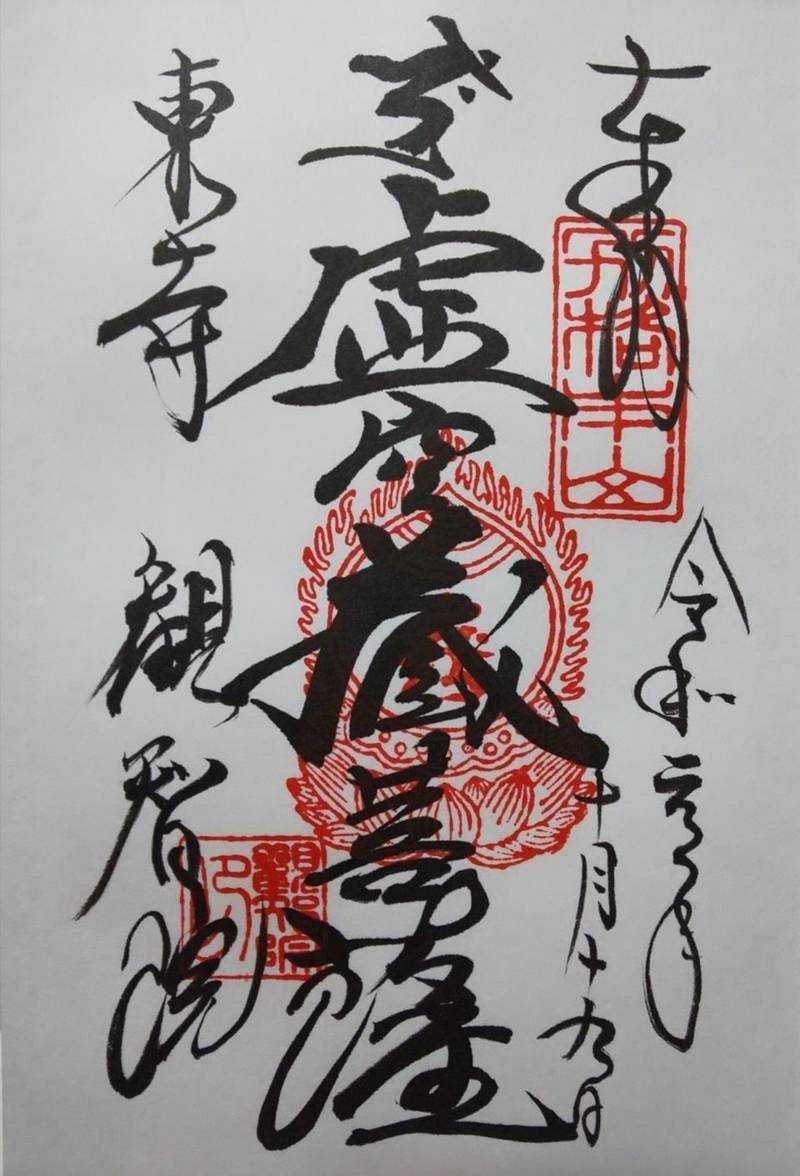 奉拝
令和元年
十月十九日
五大虚空蔵菩薩
東寺
観智院